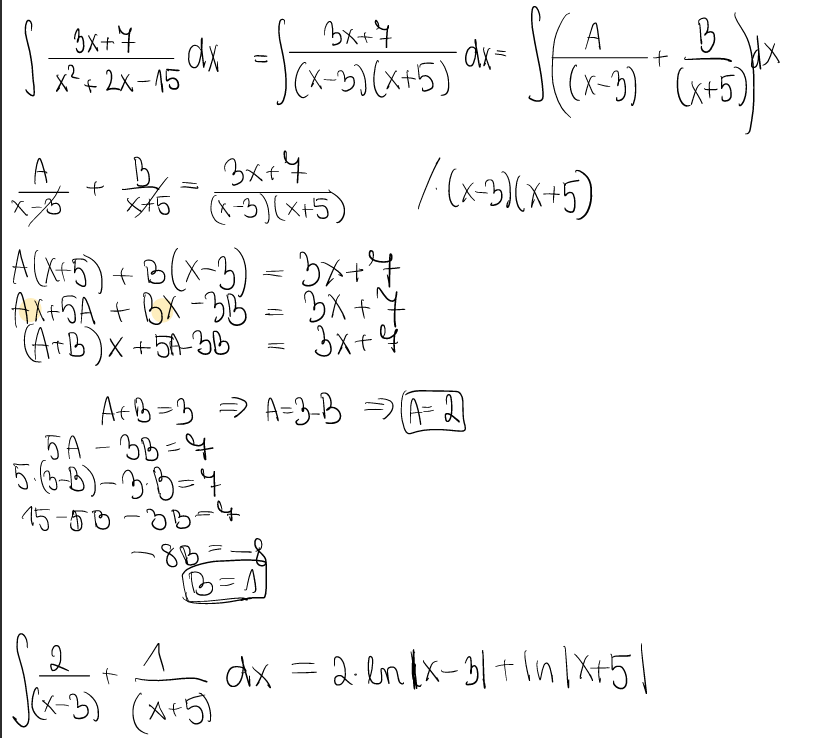 ∫ (3x+7)/(x²+2x-15) dx = ∫ (3x+7)/((x-3)(x+5)) dx = ∫ (A/(x-3) + B/(x+5)) dx
A/(x-3) + B/(x+5) = (3x+7)/((x-3)(x+5)) /·(x-3)(x+5)
A(x+5) + B(x-3) = 3x+7
Ax+5A + Bx-3B = 3x+7
(A+B)x+5A-3B = 3x+7
A+B=3 ⇒ A=3-B ⇒ A=2
5A-3B=7
5·(3-B)-3·B=7
15-5B-3B=7
-8B=-8
B=1
∫ 2/(x-3) + 1/(x+5) dx = 2·ln|x-3|+ln|x+5|